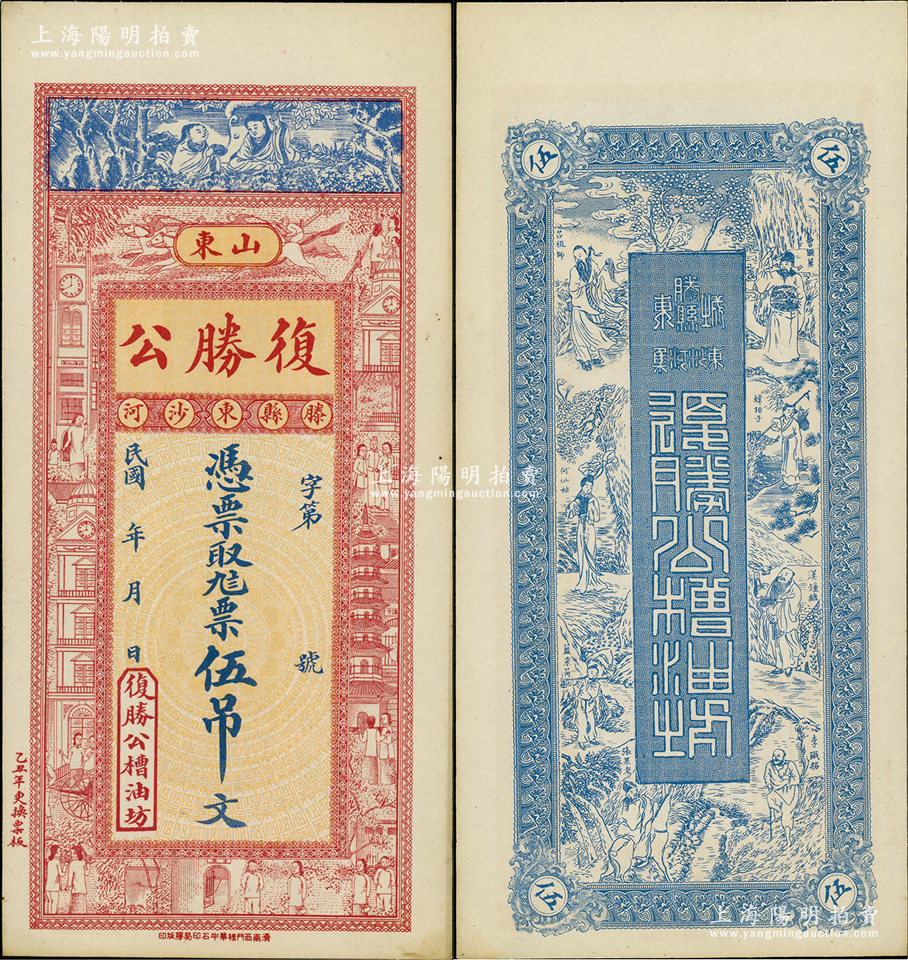 上海陽明拍賣
www.yangmingauction.com
山東
復勝公
滕縣東沙河
字第 號
憑票取㐬票伍吊文
民國 年 月 日
復勝公槽油坊
乙丑年更換票板
濟南西門裡華中石印局膠版印
上海陽明拍賣
www.yangmingauction.com
伍
伍
呂祖師
曹國舅
滕縣
城東
復勝公槽油坊
韓湘子
何仙姑
漢鍾離
藍采和
張果老
李鐵拐
伍
伍
上海陽明拍賣
www.yangmingauction.com